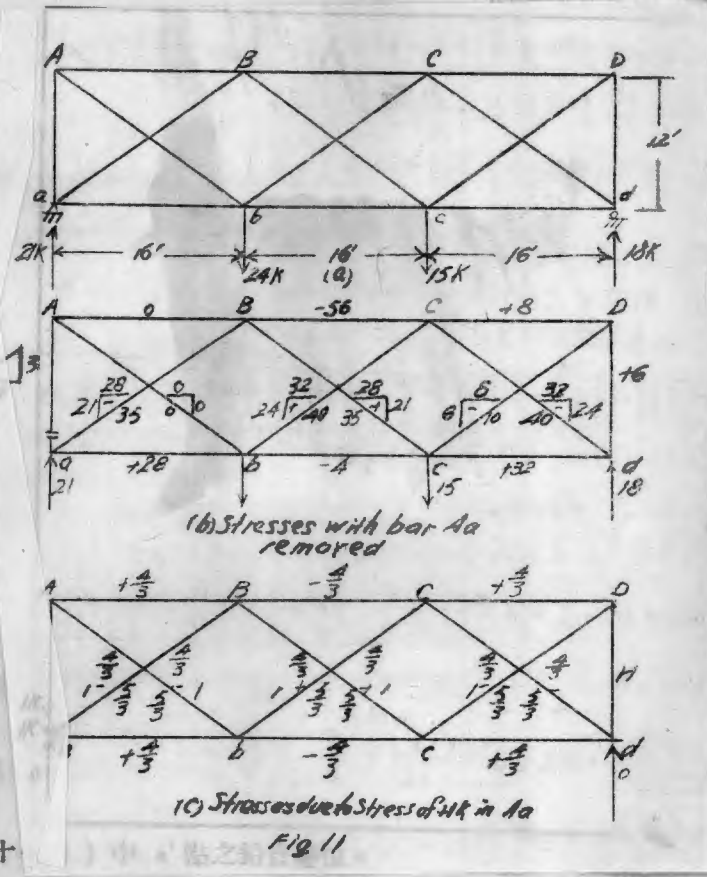 A B C D
12'
a b c d
21K 16' 16' 16 18K
24K (a) 15K
A 0 B -56 C +8 D
+6
28 0 32 28 8 32
21 - 35 0 0 24 + 40 35 + 21 6 - 10 40 - 24
a +28 b -4 c +32 d
21 15 18
(b) Stresses with bar Aa
removed
+4/3 B -4/3 C +4/3 D
4/3 4/3 4/3 4/3 4/3 4/3
1 - 5/3 5/3 - 1 1 + 5/3 5/3 + 1 1 - 5/3 5/3 -
+4/3 b -4/3 c +4/3 d
0
(c) Stresses due to Stress of +1k in Aa
Fig 11